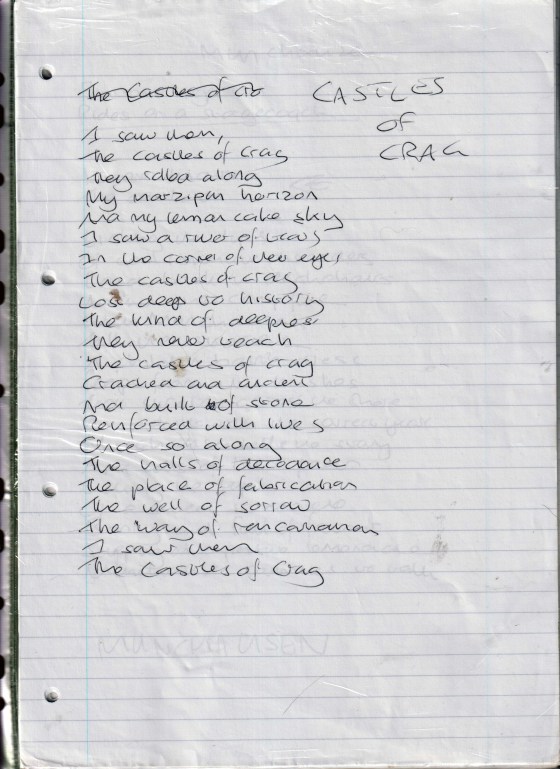 The Castles of
CASTLES
OF
CRAG
I saw them,
The castles of crag
They along
My marzipan horizon
And my lemon cake sky
I saw a river of tears
In the corner of her eyes
The castles of crag
Lost deep to history
The kind of deepness
They never teach
The castles of crag
Cracked and ancient
And built of stone
Reinforced with lives
Once so along
The halls of decadence
The place of fabrication
The well of sorrow
The way of
I saw them
The Castles of Crag
MUNCHAUSEN